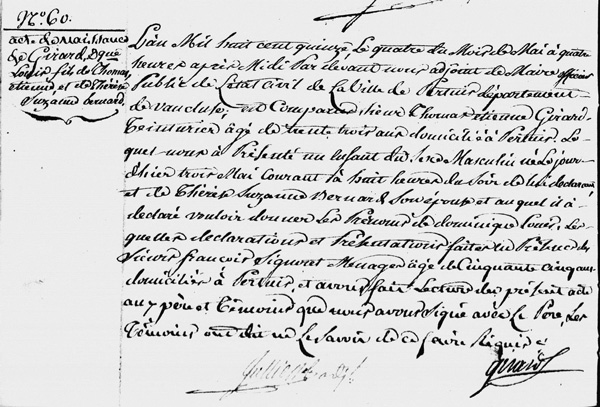 N.° 60.
acte de Naissance
de Girard, dque
Louis fils de Thomas
etienne et de Thérèse
Suzanne bernard.
L'an Mil huit cent quinze Le quatre du Mois de Mai à quatre
heures après Midi Par devant nous adjoint de Maire officier
Public de L'état Civil de La Ville de Pertuis département
de vaucluse, est Comparu sieur Thomas etienne Girard
Teinturier âgé de trente trois ans domicilié à Pertuis. Le
quel nous à Présenté un Enfant du sexe Masculin né Le jour
d'hier trois Mai Courant à huit heures du Soir de lui déclarant
et de Thérèse Suzanne Bernard Son épouse et au quel il à
déclaré vouloir donner Les Prénoms de dominique Louis. Les
quelles déclarations et Présentations faites en Présence des
Sieurs françois Ménager âgé de Cinquante Cinq ans
domiciliés à Pertuis, et avons fait Lecture du présent acte
aux père et Témoins que nous avons Signé avec Le Père, Les
Témoins ont dit ne Le Savoir de ce faire Requis
Girard